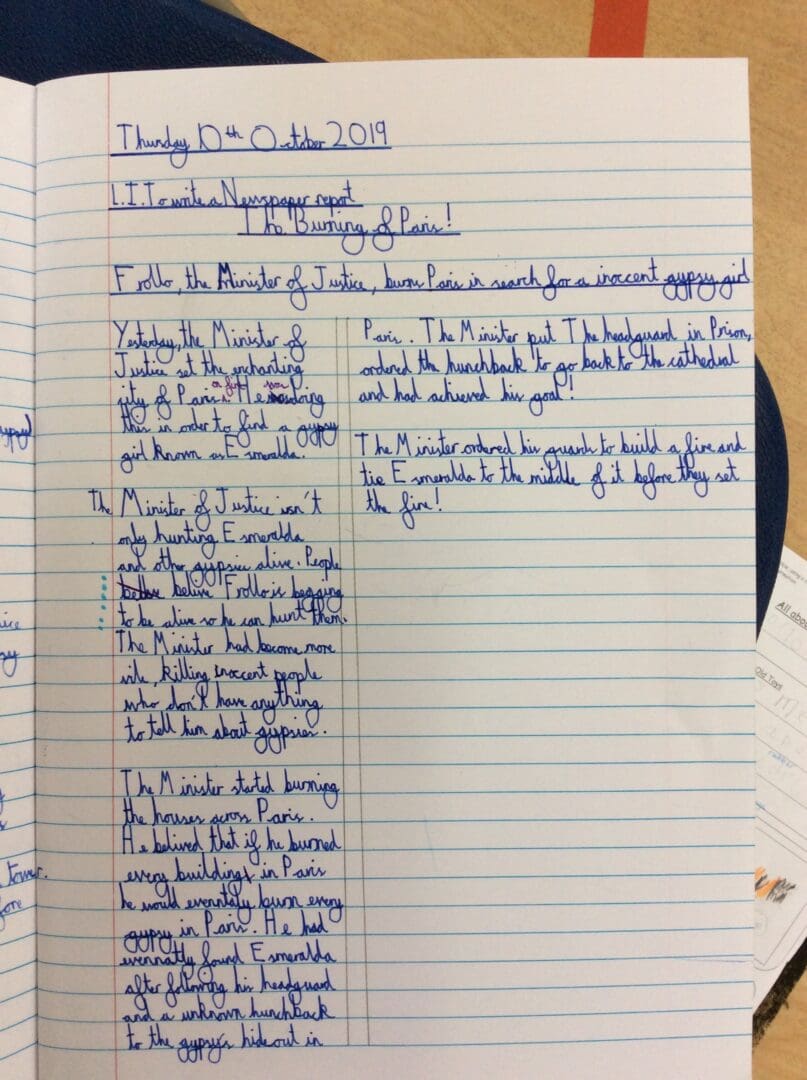 Thursday 10th October 2019
L.I. To write a Newspaper report
The Burning of Paris!
Frollo, the Minister of Justice, burns Paris in search for a inoccent gypsy girl
Yesterday, the Minister of
Justice set the enchanting
city of Paris a fire. He was doing
this in order to find a gypsy
girl known as Esmeralda.
The Minister of Justice isn't
only hunting Esmeralda
and other gypsies alive. People
belive Frollo is begging
to be alive so he can hunt them.
The Minister had become more
vile, killing inoccent people
who don't have anything
to tell him about gypsies.
The Minister started burning
the houses across Paris.
He belived that if he burned
every building in Paris
he would evenntaly burn every
gypsy in Paris. He had
evennatly found Esmeralda
after following his headguard
and a unknown hunchback
to the gypsy's hideout in
Paris. The Minister put The headguard in Prison,
ordered the hunchback to go back to the cathedral
and had achieved his goal!
The Minister ordered his guards to build a fire and
tie Esmeralda to the middle of it before they set
the fire!
tower.
All abou
Old Text